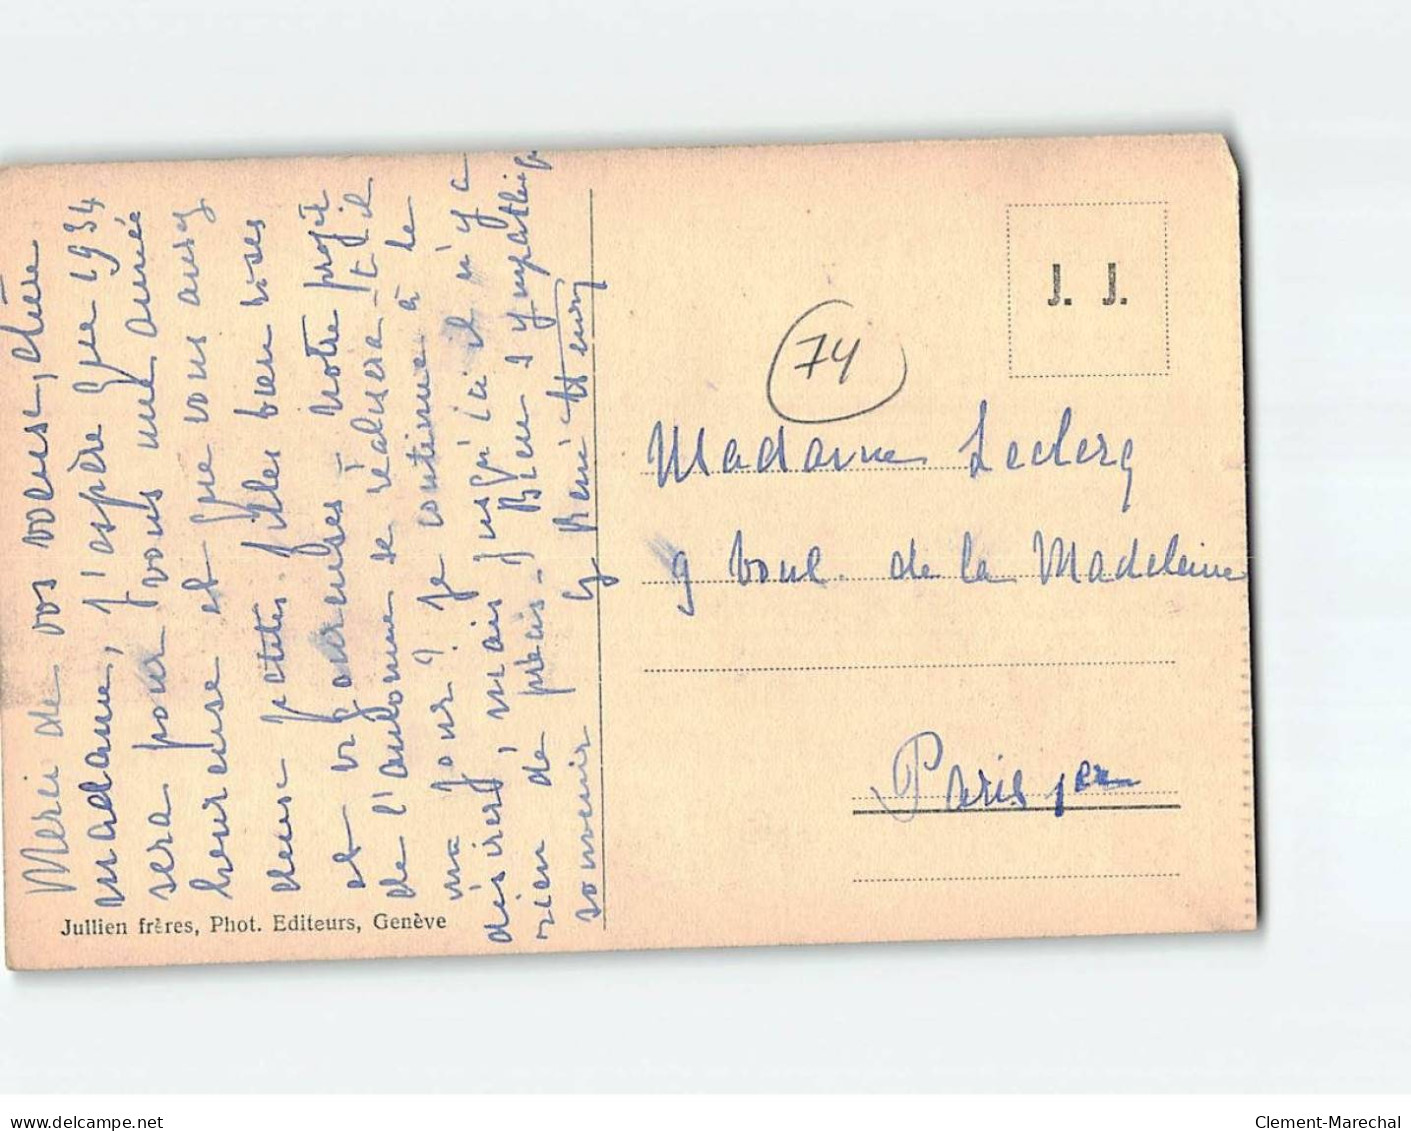 Merci de vos voeux, chère
madame, j'espère que 1934
sera pour vous une année
heureuse et que vous aurez
deux petites filles bien roses
et vigoureuses - Notre projet
de l'automne se réalisera-t-il
un jour ? Je continue à le
désirer, mais jusqu'ici il n'y a
rien de précis. Bien sympathique
souvenir
Henry
J. J.
74
Madame Leclerq
9 boul. de la Madeleine
Paris 1er
Jullien frères, Phot. Editeurs, Genève
www.delcampe.net
Clement-Marechal